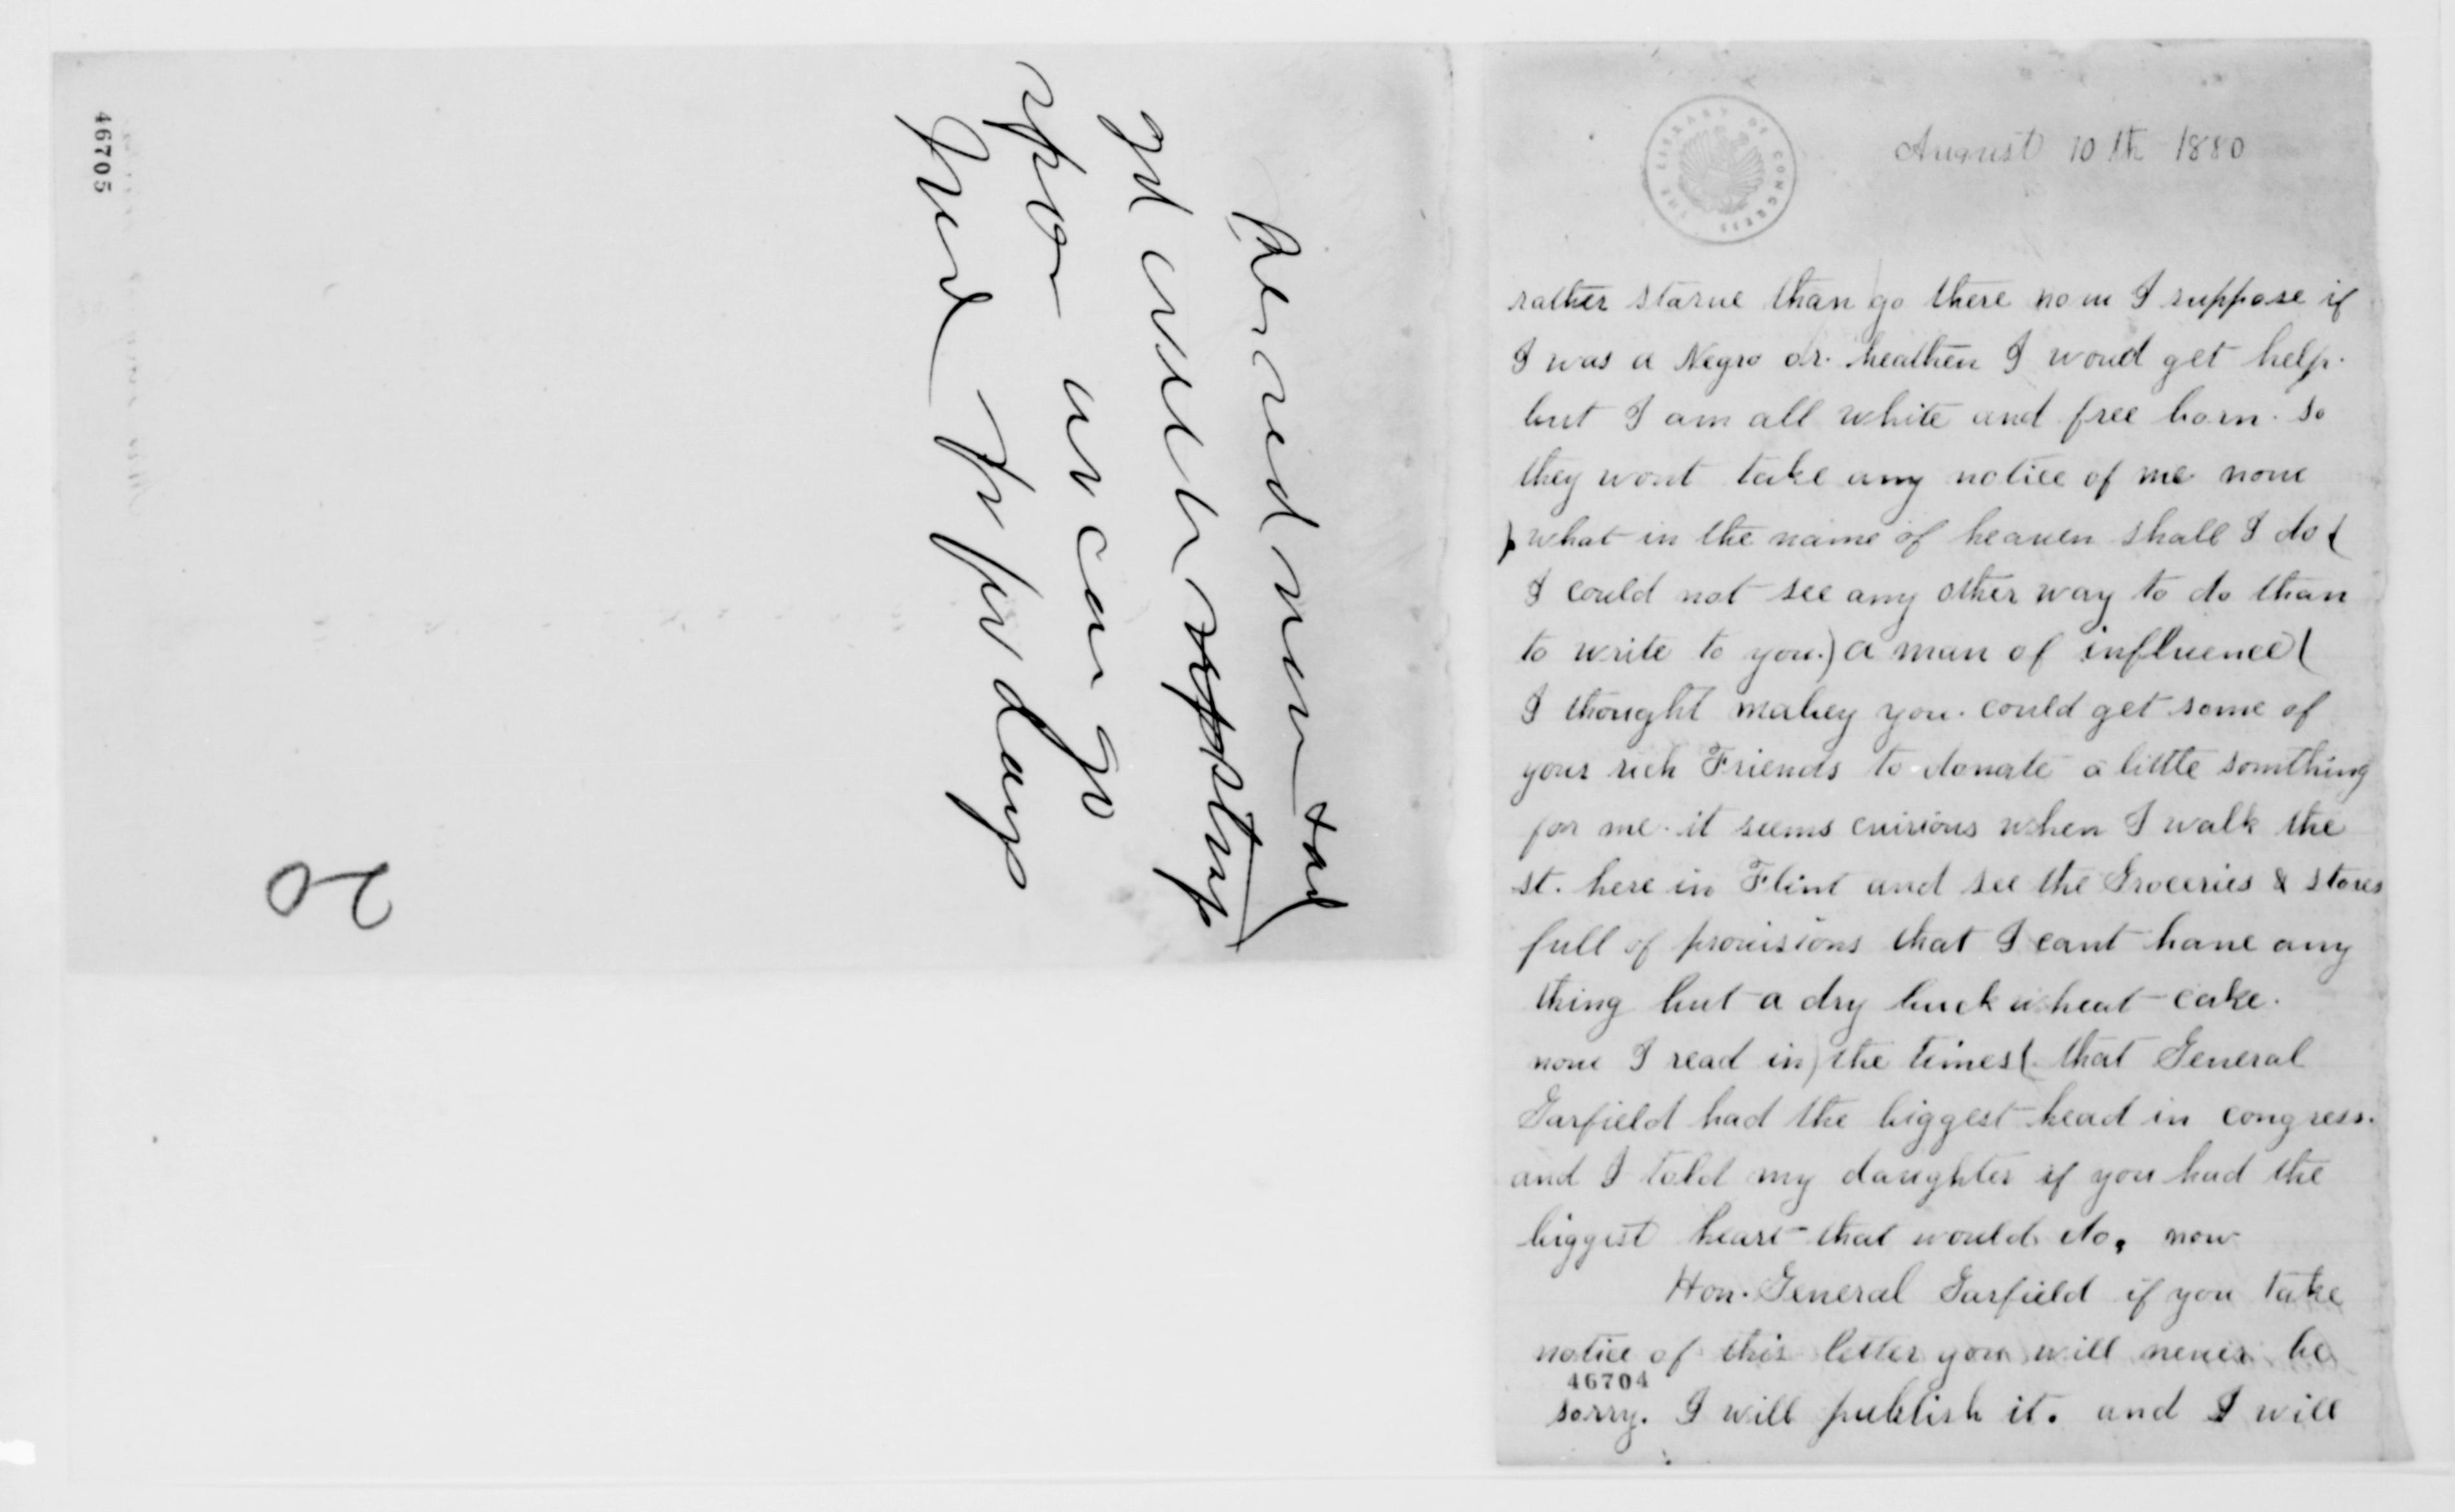 46705
get well
upon we can go
few days
20
THE LIBRARY OF CONGRESS
August 10th 1880
rather starve than go there now I suppose if
I was a Negro or. heathen I woud get help.
but I am all white and free born. so
they wont take any notice of me now
) what in the name of heaven shall I do (
I could not see any other way to do than
to write to you.) a man of influence (
I thought mabey you. could get some of
your rich Friends to donate a little somthing
for me. it seems cuirious when I walk the
st. here in Flint and see the Groceries & stores
full of provisions that I cant have any
thing but a dry buck wheat cake.
now I read in) the times (. that General
Garfield had the biggest head in congress.
and I told my daughter if you had the
biggest heart that would do, now
Hon. General Garfield if you take
notice of this letter you will never be
46704
sorry. I will publish it. and I will